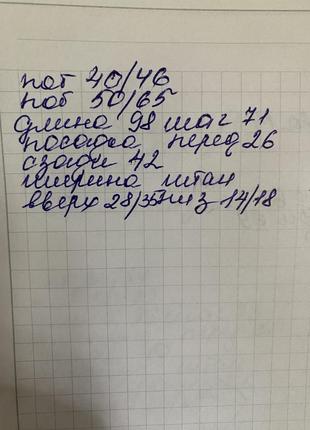 пот 40/46
поб 50/65
длина 98 шаг 71
посадка перед 26
сзади 42
ширина штан
вверх 28/35 низ 14/18